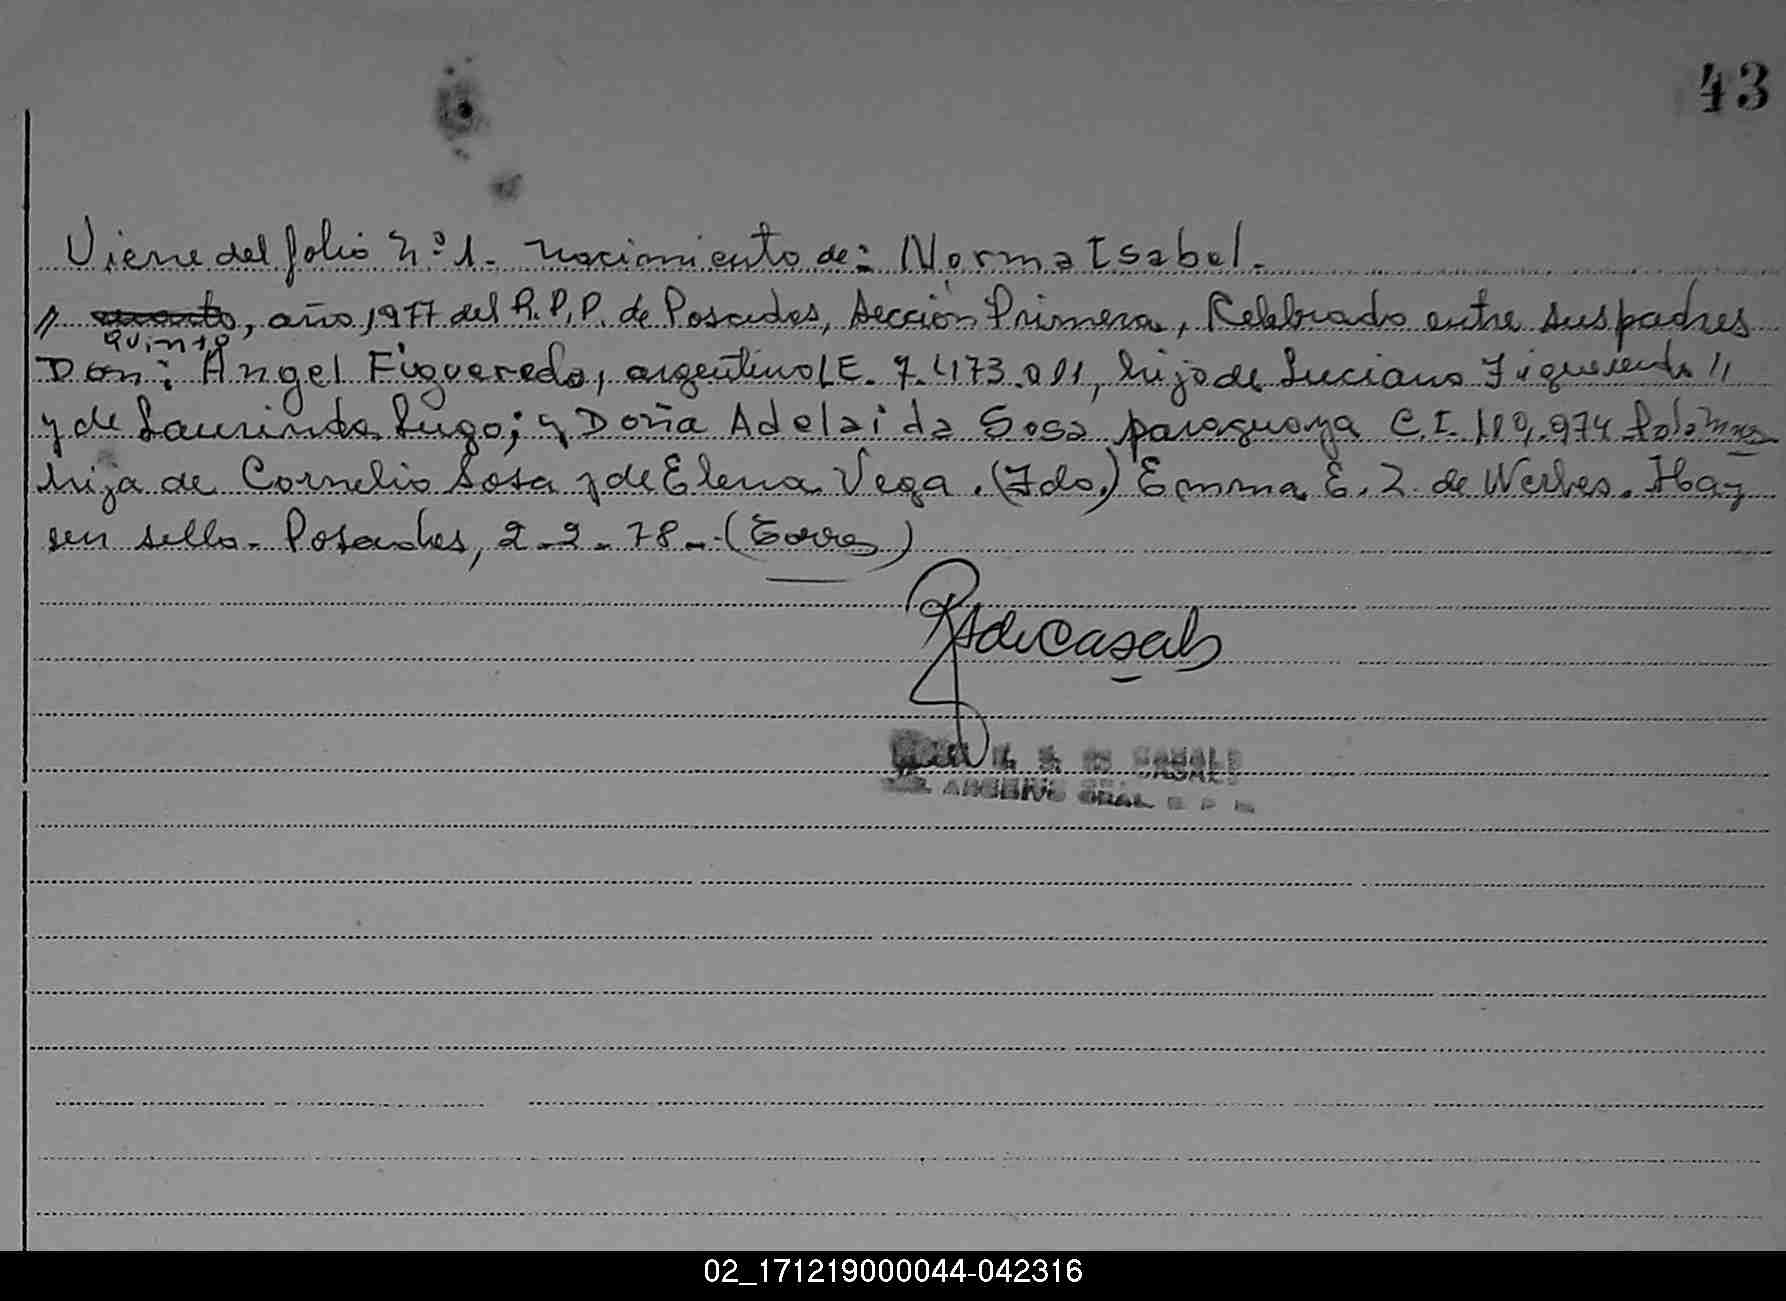 43
Viene del folio Nº 1. Nacimiento de: Norma Isabel.
// quinto, año 1977 del R.P.P. de Posadas, Sección Primera, Celebrado entre sus padres
Don: Angel Figueredo, argentino L.E. 7.473.011, hijo de Luciano Figueredo //
y de Laurinda Lugo; y Doña Adelaida Sosa paraguaya C.I. 110.974
hija de Cornelio Sosa y de Elena Vega. (Fdo.) Emma E. Z. de Werbes. Hay
un sello. Posadas, 2-2-78-
RSdeCasals
DE CASALS
ARCHIVO GRAL
02_171219000044-042316